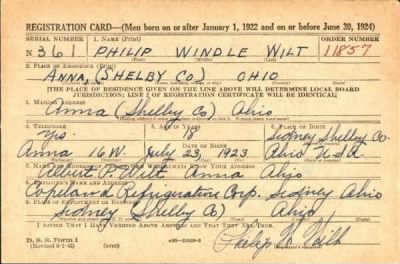 REGISTRATION CARD—(Men born on or after January 1, 1922 and on or before June 30, 1924)
SERIAL NUMBER 1. NAME (Print) ORDER NUMBER
N 361 PHILIP WINDLE WILT 11857
(First) (Middle) (Last)
2. PLACE OF RESIDENCE (Print)
ANNA, (SHELBY CO) OHIO
[THE PLACE OF RESIDENCE GIVEN ON THE LINE ABOVE WILL DETERMINE LOCAL BOARD
JURISDICTION; LINE 2 OF REGISTRATION CERTIFICATE WILL BE IDENTICAL]
3. MAILING ADDRESS
Anna (Shelby Co) Ohio
4. TELEPHONE 5. AGE IN YEARS 6. PLACE OF BIRTH
18 Sidney Shelby Co.
DATE OF BIRTH
Anna 16W July 23, 1923 Ohio U.S.A
7. NAME AND ADDRESS OF PERSON WHO WILL ALWAYS KNOW YOUR ADDRESS
Albert P. Wilt Anna Ohio
8. EMPLOYER'S NAME AND ADDRESS
Copeland Refrigeration Corp. Sidney Ohio
9. PLACE OF EMPLOYMENT OR BUSINESS
Sidney (Shelby Co) Ohio
I AFFIRM THAT I HAVE VERIFIED ABOVE ANSWERS AND THAT THEY ARE TRUE.
D. S. S. Form 1
Philip W Wilt